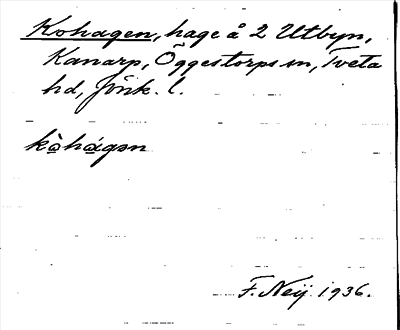 Kohagen, hage å 2 Utbyn,
Kanarp, Öggestorps sn, Tveta
hd, Jönk. l.
kò̀hágən
F. Neij. 1936.